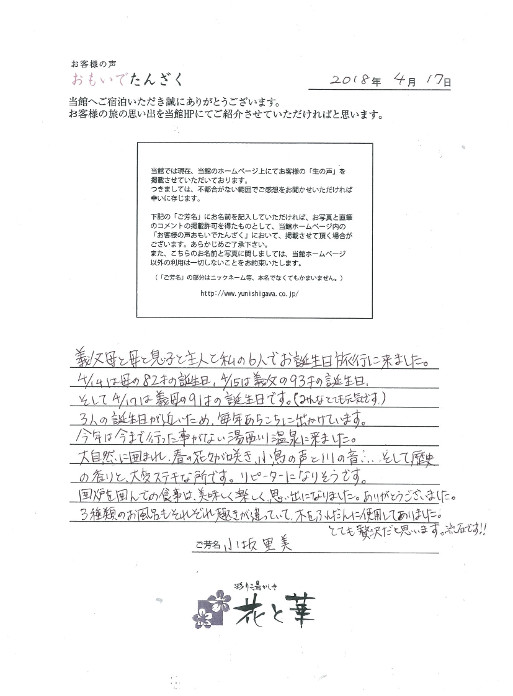 お客様の声
おもいでたんざく
2018年 4月 17日
当館へご宿泊いただき誠にありがとうございます。
お客様の旅の思い出を当館HPにてご紹介させていただければと思います。
当館では現在、当館のホームページ上にてお客様の「生の声」を
掲載させていただいております。
つきましては、不都合がない範囲でご感想をお聞かせいただければ
幸いに存じます。
下記の「ご芳名」にお名前を記入していただければ、お写真と直筆
のコメントの掲載許可を得たものとして、当館ホームページ内の
「お客様の声おもいでたんざく」において、掲載させて頂く場合が
ございます。あらかじめご了承下さい。
また、こちらのお名前と写真に関しましては、当館ホームページ
以外の利用は一切しないことをお約束いたします。
(「ご芳名」の部分はニックネーム等、本名でなくてもかまいません。)
http://www.yunishigawa.co.jp/
義父母と母と息子と主人と私の6人でお誕生日旅行に来ました。
4/14は母の82才の誕生日、4/15は義父の93才の誕生日、
そして4/17は義母の91才の誕生日です。(みんなとても元気です)
3人の誕生日が近いため、毎年あちこちに出かけています。
今年は今まで行った事がない湯西川温泉に来ました。
大自然に囲まれ、春の花々が咲き、小鳥の声と川の音… そして歴史
の香りと、大変ステキな所です。リピーターになりそうです。
囲炉を囲んでの食事は、美味しく楽しく思い出になりました。ありがとうございました。
3種類のお風呂もそれぞれ趣きが違っていて、木をふんだんに使用してありました。
とても贅沢だと思います。流石です!!
ご芳名 小坂里美
彩り湯かしき
花と華